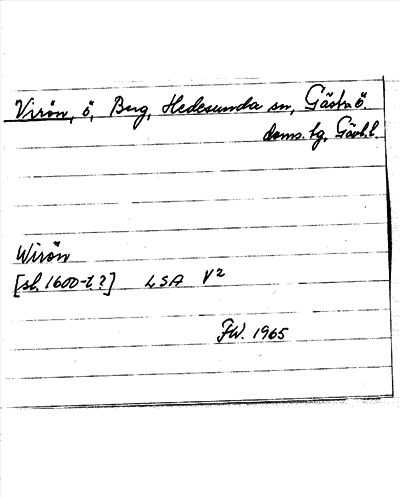 Virön, ö, Berg, Hedesunda sn, Gästr. ö.
doms. hg, Gävl. l.
Wirön
[sl. 1600-t.?] LSA V2
FW. 1965